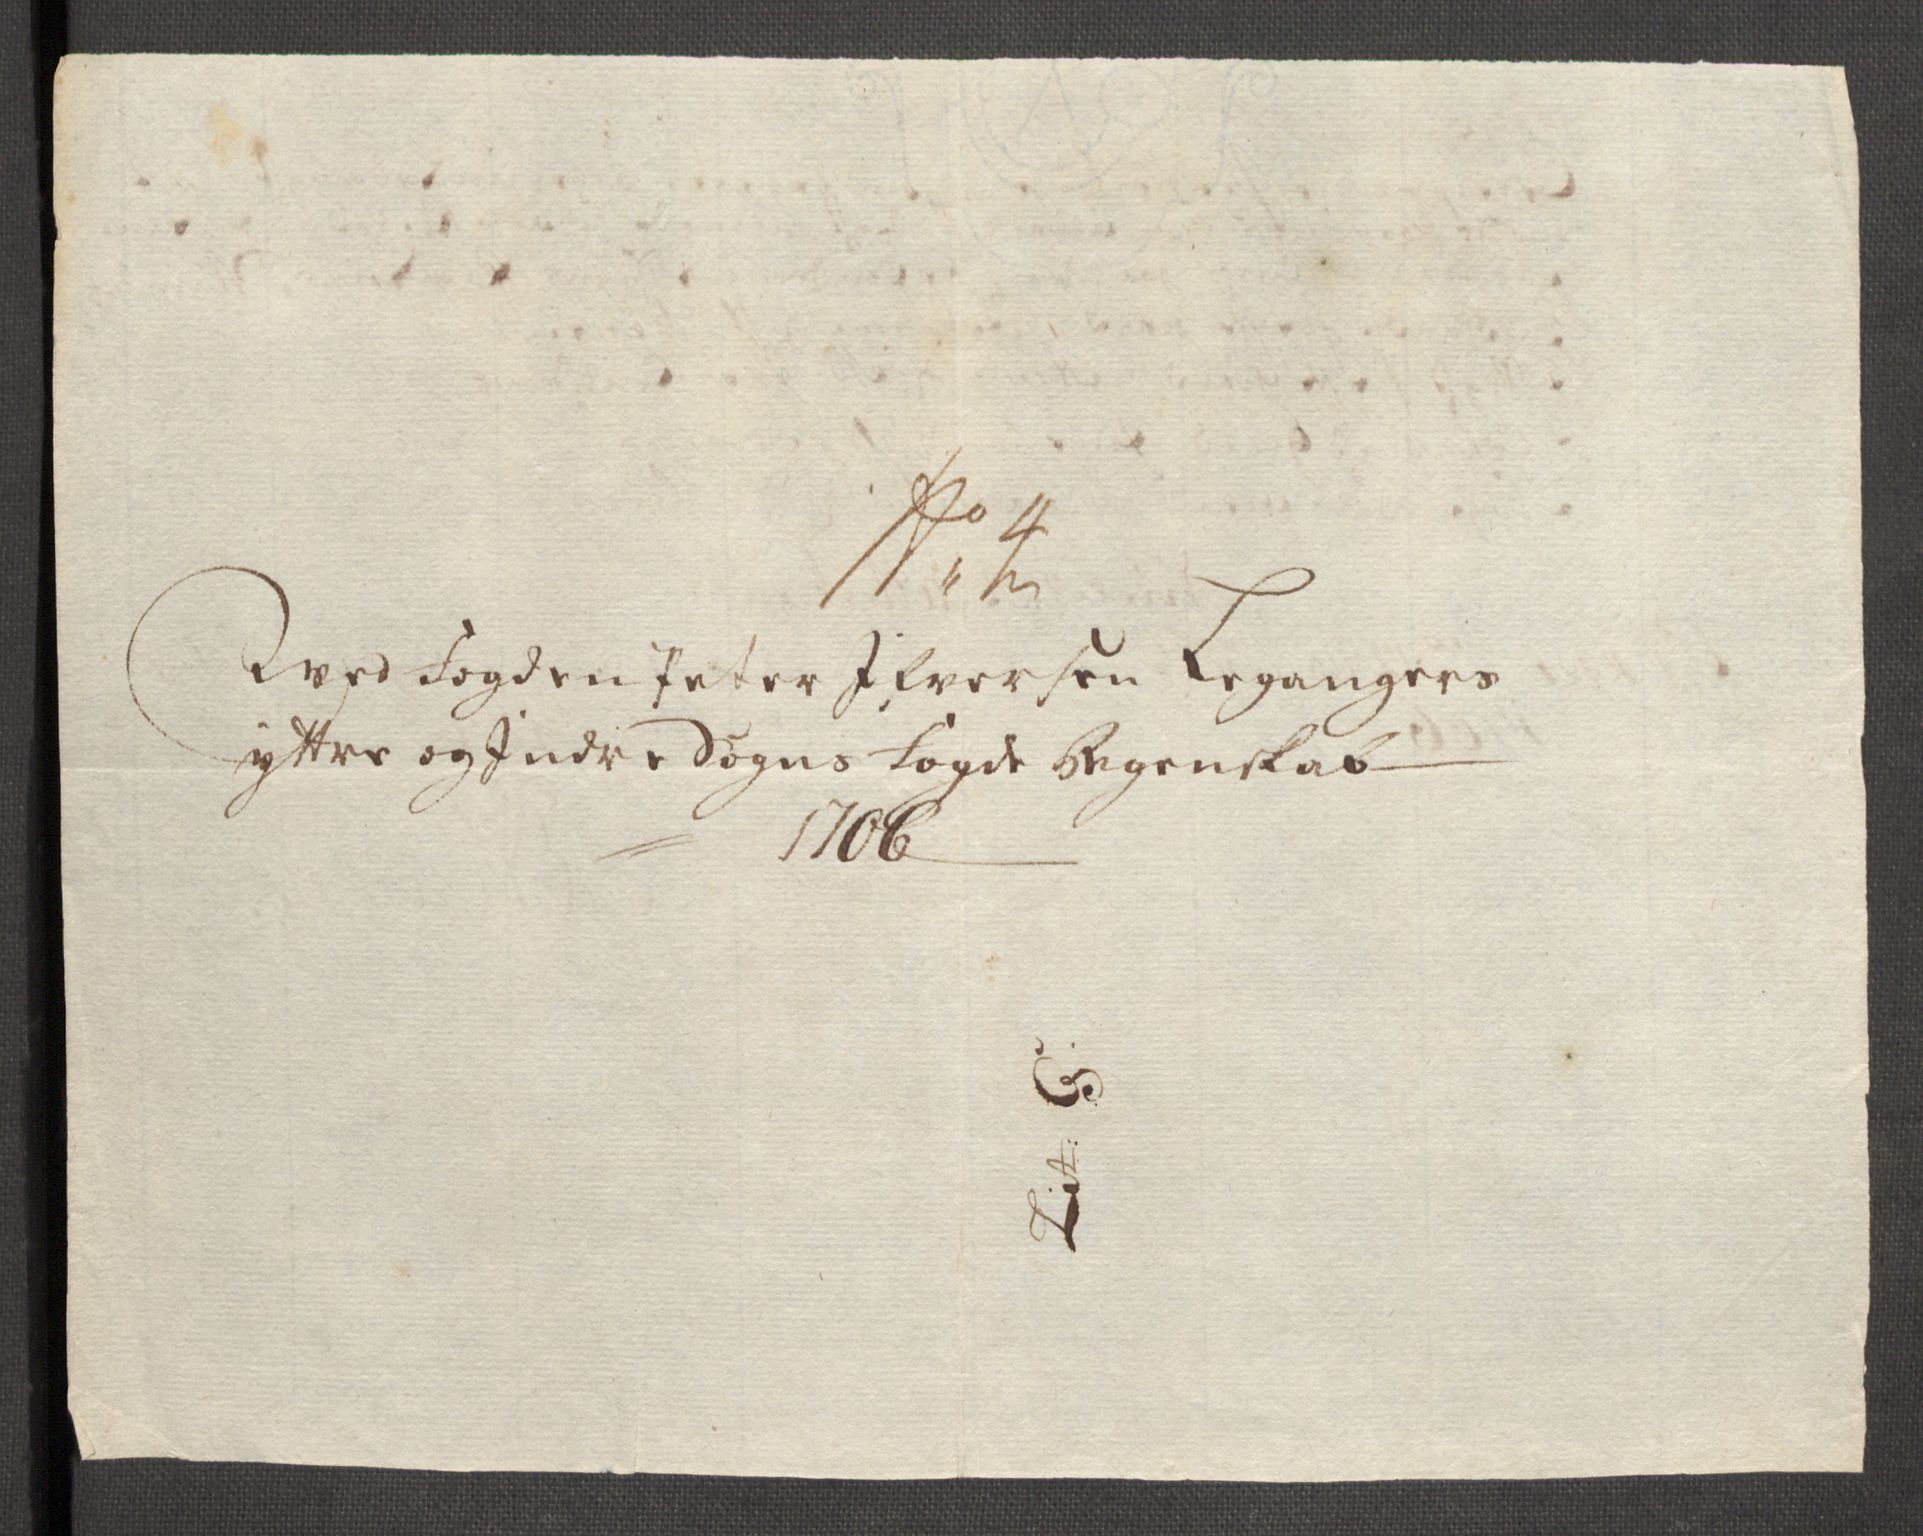 No 4
Wed Fogden Peter Ifversen Legangers
ÿttre og Indre Sogns Fogde Regenskab
1706
Lit: G: